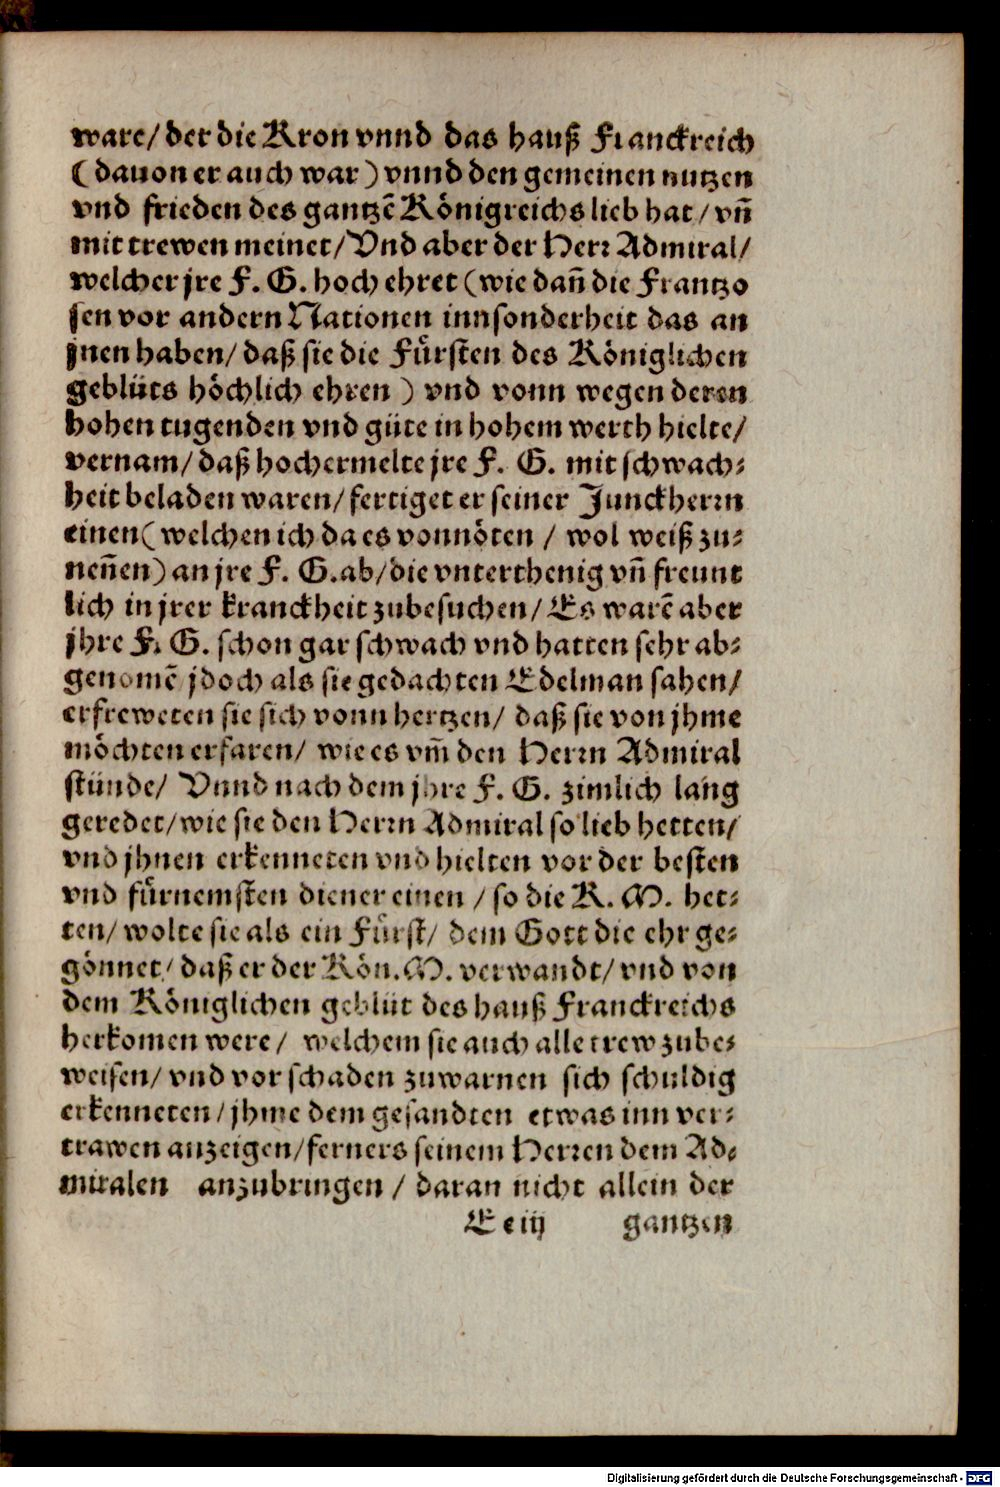 ware/ der die Kron vnnd das hauß Franckreich
( dauon er auch war ) vnnd den gemeinen nutzen
vnd frieden des gantzẽ Königreichs lieb hat / vñ
mit trewen meinet/ Vnd aber der Herr Admiral/
welcher jre F. G. hoch ehret (wie dañ die Frantzo
sen vor andern Nationen innsonderheit das an
jnen haben/ daß sie die Fürsten des Königlichen
geblüts höchlich ehren ) vnd vonn wegen deren
hohen tugenden vnd güte in hohem werth hielte/
vernam/ daß hochermelte jre F. G. mit schwach-
heit beladen waren/ fertiget er seiner Junckherrn
einen( welchen ich da es vonnöten / wol weiß zu-
neñen) an jre F. G. ab/ die vnterthenig vñ freunt
lich in jrer kranckheit zubesuchen/ Es warẽ aber
jhre F. G. schon gar schwach vnd hatten sehr ab-
genomẽ jdoch als sie gedachten Edelman sahen/
erfreweten sie sich vonn hertzen/ daß sie von jhme
möchten erfaren/ wie es vm̃ den Herrn Admiral
stünde/ Vnnd nach dem jhre F. G. zimlich lang
geredet/ wie sie den Herrn Admiral so lieb hetten/
vnd jhnen erkenneten vnd hielten vor der besten
vnd fürnemsten diener einen / so die K. M. het-
ten/ wolte sie als ein Fürst/ dem Gott die ehr ge-
gönnet/ daß er der Kön. M. verwandt/ vnd von
dem Königlichen geblüt des hauß Franckreichs
herkomen were/ welchem sie auch alle trew zube-
weisen/ vnd vor schaden zuwarnen sich schuldig
erkenneten/ jhme dem gesandten etwas inn ver-
trawen anzeigen/ ferners seinem Herren dem Ad-
miralen anzubringen / daran nicht allein der
E e iij gantzen
Digitalisierung gefördert durch die Deutsche Forschungsgemeinschaft - DFG